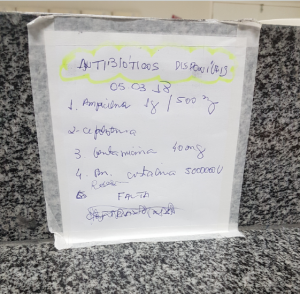 ANTIBIÓTICOS DISPONÍVEIS
05.03.18
1. Ampicilina 1g / 500 mg
2. Cefalotina
3 Gentamicina 40mg
4. Pen. cristalina
FALTA